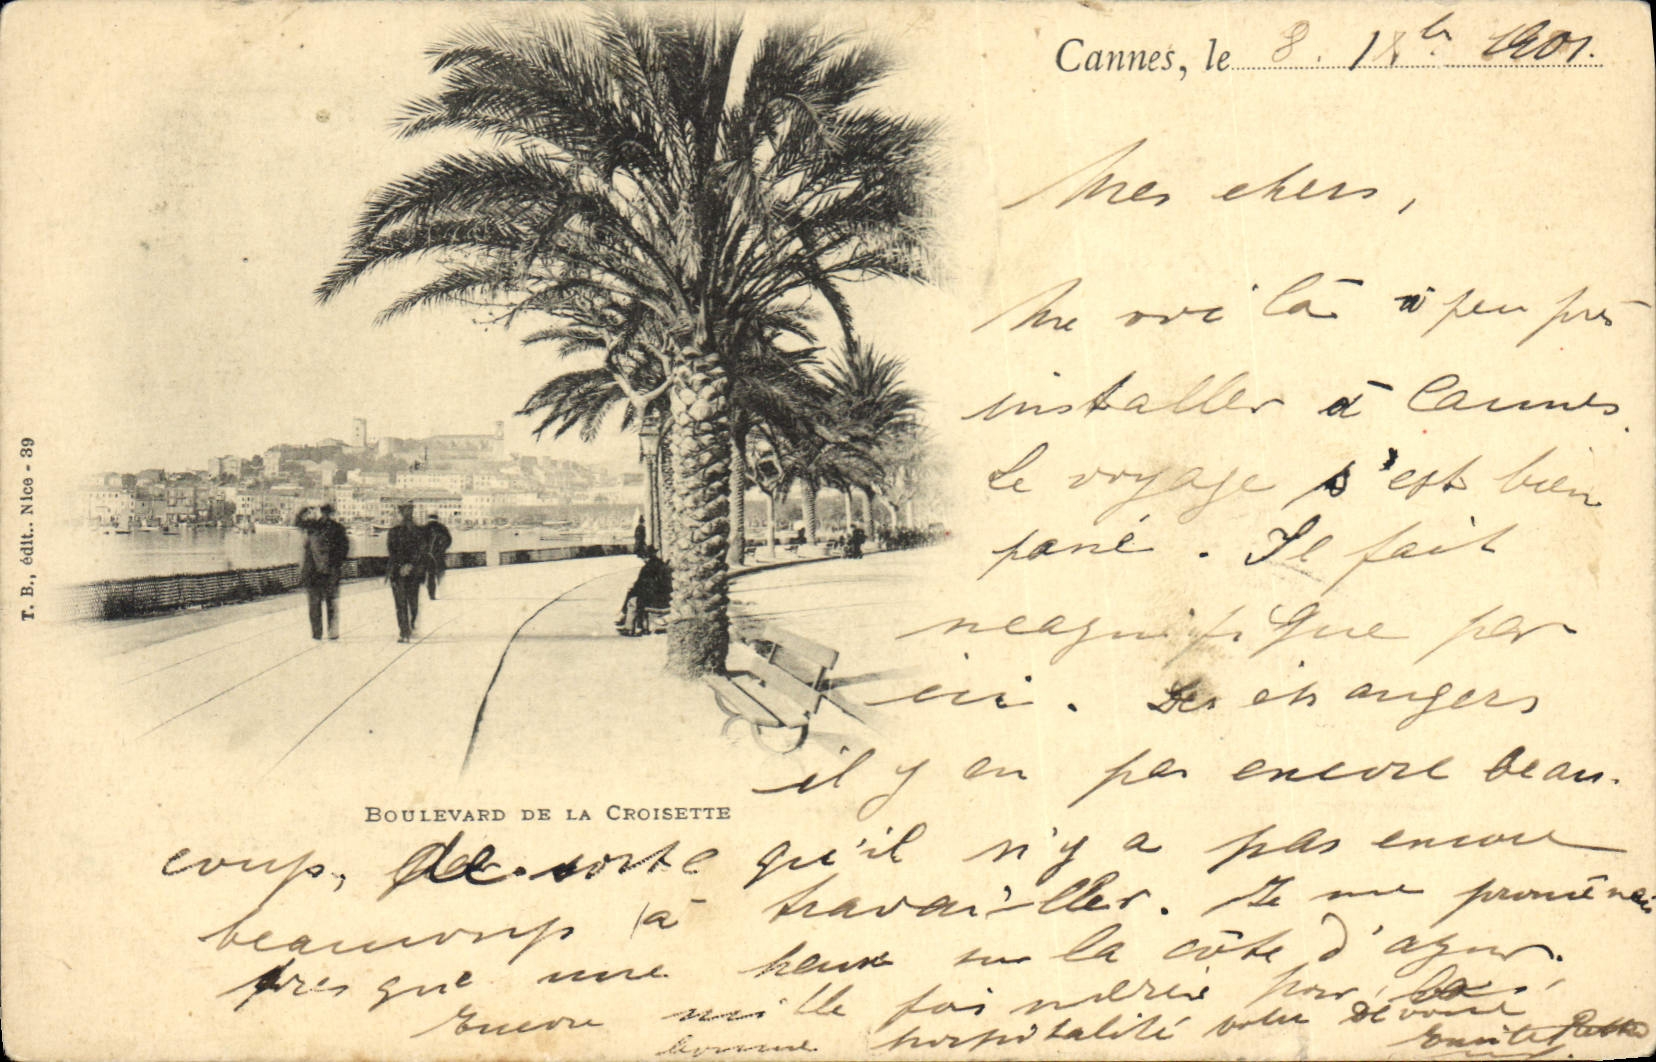 Cannes, le 8. 1Xbr 1901.
Mes chers,
Me voilà à peu près
installer à Cannes.
Le voyage s'est bien
passé. Il fait
magnifique par
ici. Des étrangers
il y en pas encore beau-
coup, de sorte qu'il n'y a pas encore
beaucoup à travailler. Je me promenais
presque une heure sur la côte d'azur.
Encore mille fois merci pour
bonne hospitalité votre Dévoué
Emile
BOULEVARD DE LA CROISETTE
T. B., édit.. Nice - 39